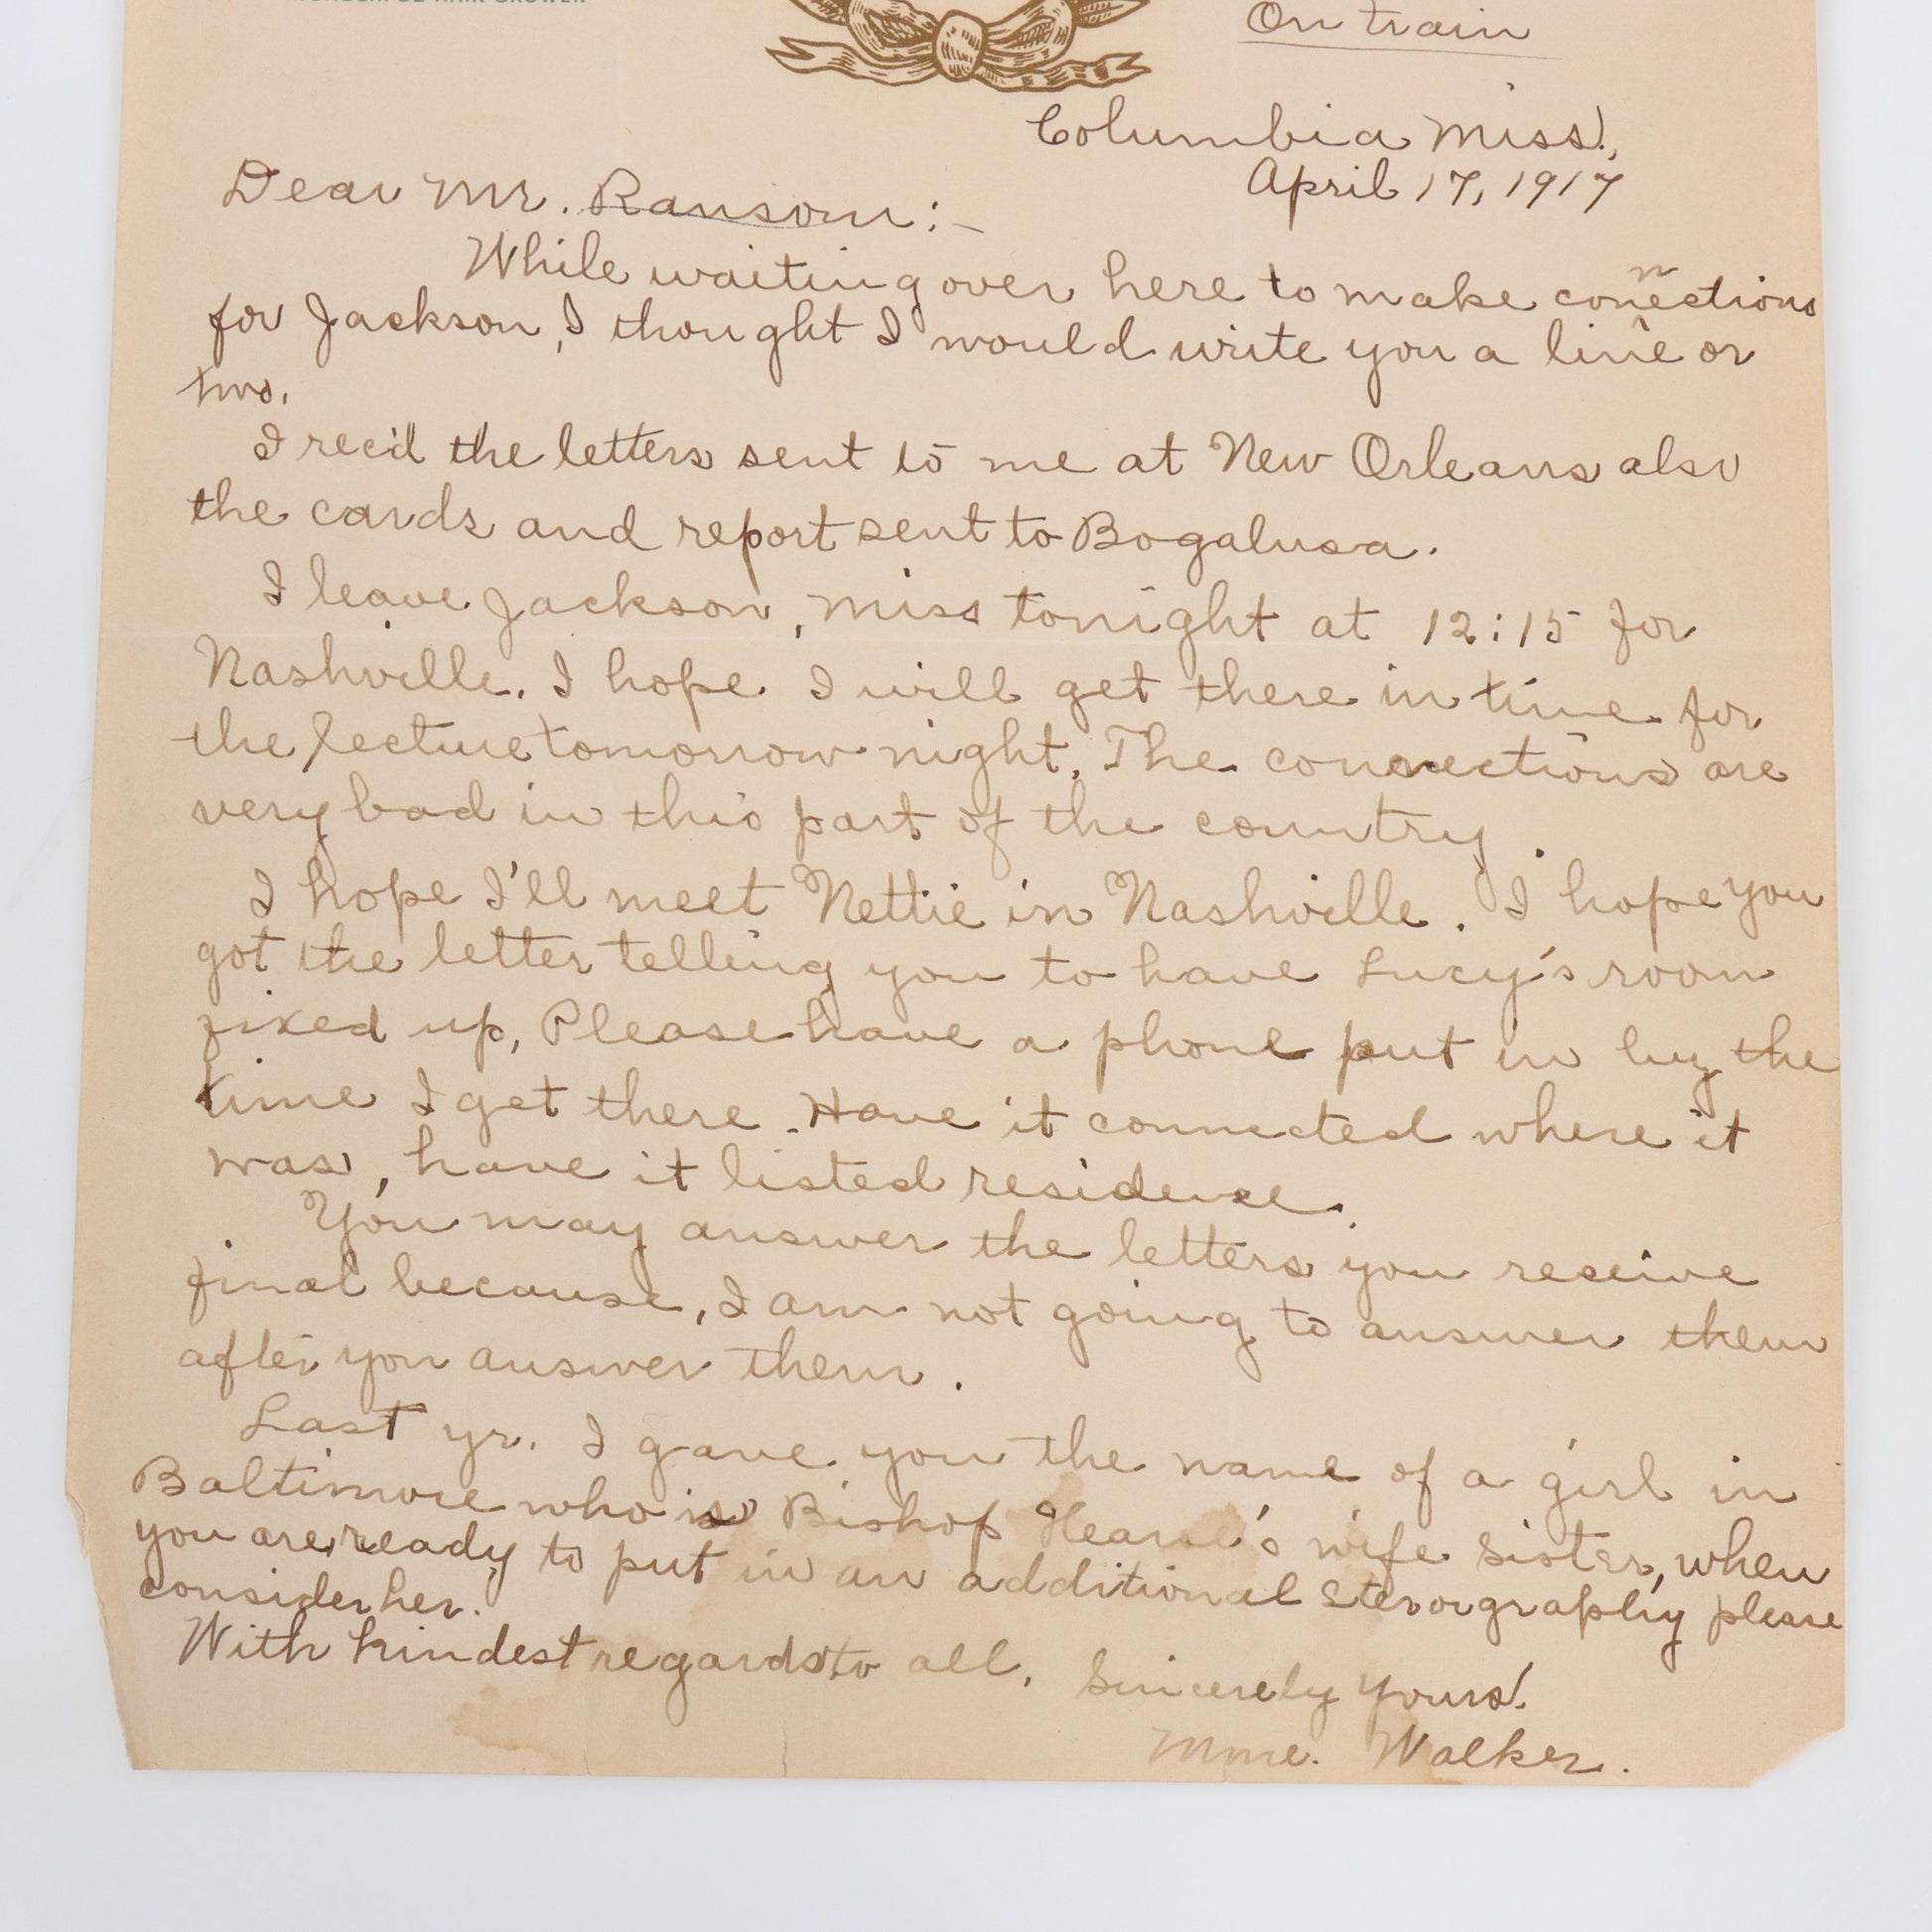 WONDERFUL HAIR GROWER
On train
Columbia Miss.,
April 17, 1917
Dear Mr. Ransom:-
While waiting over here to make connections
for Jackson, I thought I would write you a line or
two.
I rec'd the letters sent to me at New Orleans also
the cards and report sent to Bogalusa.
I leave Jackson, Miss tonight at 12:15 for
Nashville. I hope I will get there in time for
the lecture tomorrow night. The connections are
very bad in this part of the country.
I hope I'll meet Nettie in Nashville. I hope you
got the letter telling you to have Lucy's room
fixed up, Please have a phone put in by the
time I get there. Have it connected where it
was, have it listed residence.
You may answer the letters you receive
final because, I am not going to answer them
after you answer them.
Last yr. I gave you the name of a girl in
Baltimore who is Bishop Hearne's wife sister, when
you are ready to put in an additional Stenography please
consider her.
With kindest regards to all,
Sincerely Yours.
Mme. Walker.